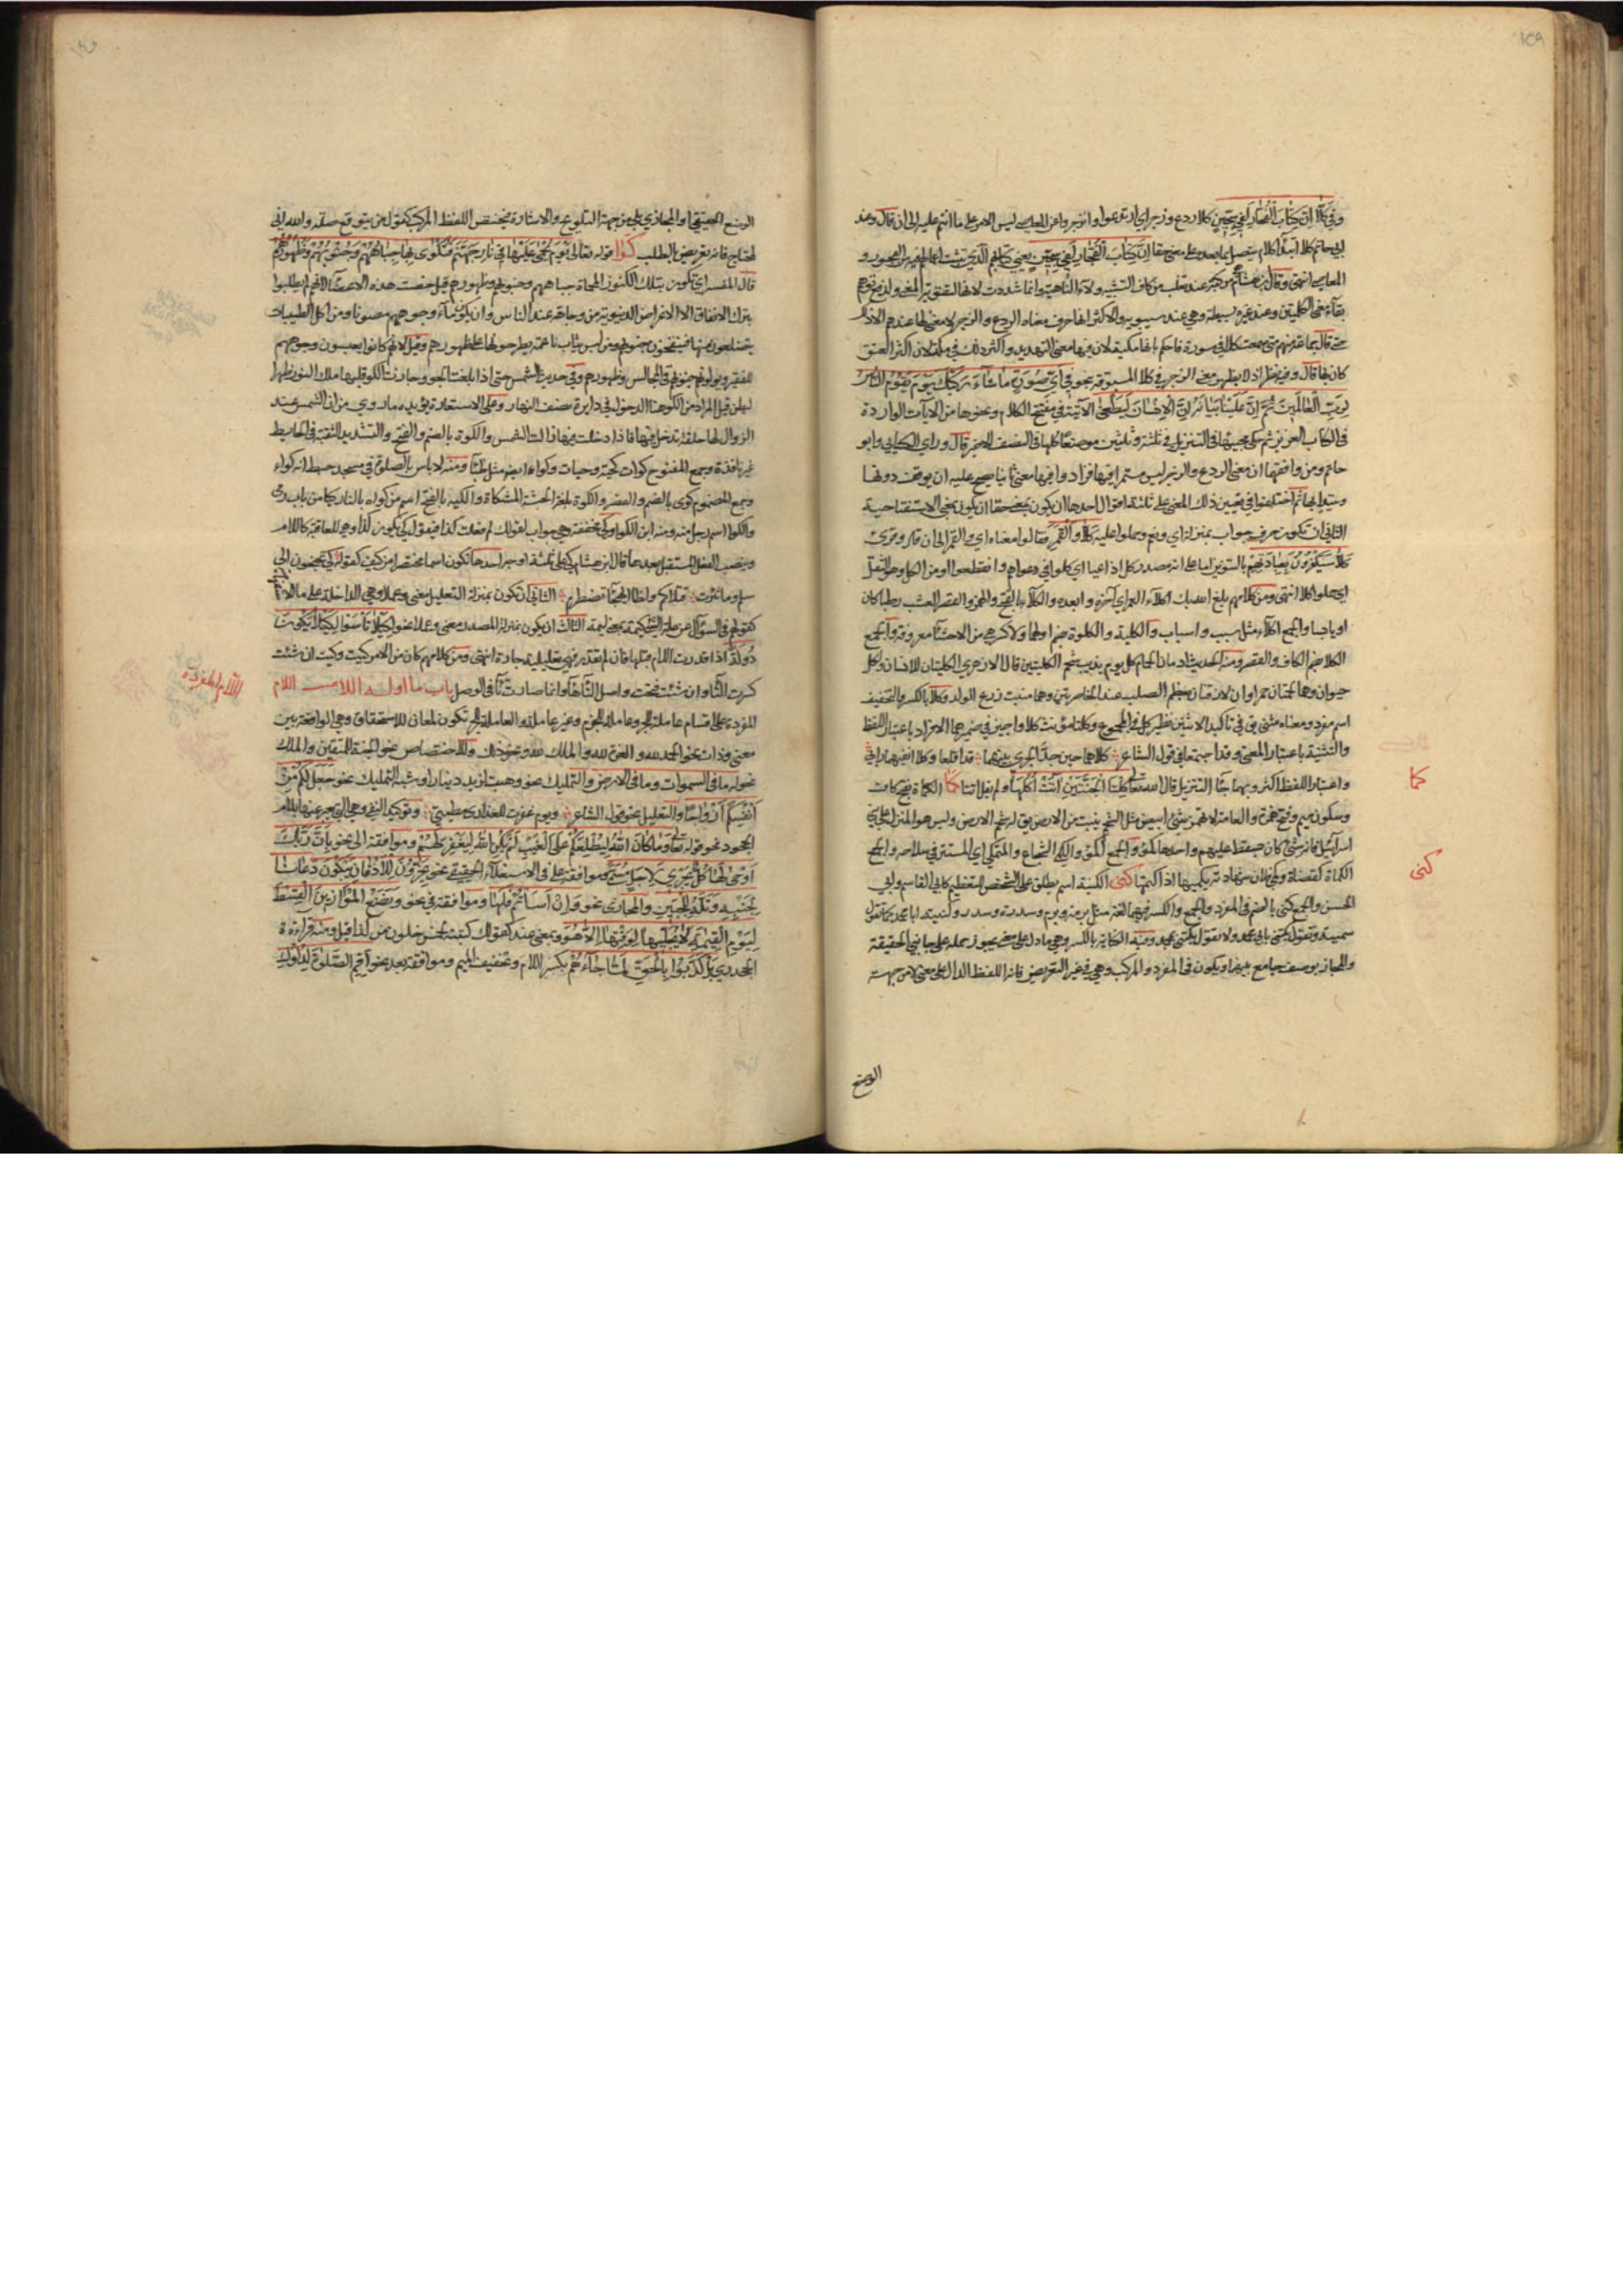 ١٤٩
وفي كلا ان كتاب الفجار لفي سجين كلا ردع وزجر اي ارتدعوا وانزجروا عن المعاصي ليس الامر على ما انتم عليه الى ان قال وعند
ابي حاتم كلا ابتداء كلام يتصل بما بعده على معنى حقا ان كتاب الفجار لفي سجين يعني كتابهم الذي تثبت اعمالهم فيه من الفجور و
المعاصي انتهى وقال ابن هشام مركبة عند ثعلب من كاف التشبيه ولاء الناهية وانما شددت لامها لتقوية المعنى ولدفع توهم
بقاء معنى الكلمتين وعند غيره بسيطة وهي عند سيبويه والاكثر انها حرف معناه الردع والزجر لا معنى لها عندهم الا ذلك
حتى قال جماعة منهم متى سمعت كلا في سورة فاحكم بانها مكية لان فيها معنى التهديد واكثر ذلك في مكة لان اكثر العتو
كان بها قال وفيه نظر اذ لا يظهر معنى الزجر في كلا المسبوقة بنحو في اي صورة ما شاء ركبك يوم يقوم الناس
لرب العالمين ثم ان علينا بيانه ان الانسان ليطغى الآتية في مفتتح الكلام ونحوها من الآيات الواردة
في الكتاب العزيز ثم حكى مجيئها في التنزيل في ثلثة وثلثين موضعا كلها في النصف الاخير قال وراى الكسائي وابو
حاتم ومن وافقهما ان معنى الردع والزجر ليس مستمرا فيها فزادوا فيها معنى ثانيا يصح عليه ان يوقف دونها
ويبتدا بها ثم اختلفوا في تعيين ذلك المعنى على ثلثة اقوال احدها ان يكون بمعنى حقا ان يكون بمعنى الاستفتاحية
الثاني ان تكون حرف جواب بمنزلة اي ونعم وحملوا عليه كلا والقمر فقالوا معناه اي والقمر الى ان قال وقرئ
كلا سيكفرون بعبادتهم بالتنوين اما على انه مصدر كل اذا اعيا اي كلوا في دعواهم وانقطعوا او من الكل وهو الثقل
اي حملوا كلا انتهى ومن كلامهم بلغ الله بك اكلاء العمر اي آخره وابعده والكلاء بالفتح والهمز والقصر العشب رطبا كان
او يابسا والجمع اكلاء مثل سبب واسباب والكلية والكلوة بضم اولهما ولا كسر هي من الاحشاء معروفة والجمع
الكلا بضم الكاف والقصر ومنه الحديث ادمان الحمام كل يوم يذيب شحم الكليتين قال الازهري الكليتان للانسان ولكل
حيوان وهما لحمتان حمراوان لازقتان بعظم الصلب عند الخاصرتين وهما منبت زرع الولد وكلا بالكسر والتخفيف
اسم مفرد ومعناه مثنى يق في تاكيد الاثنين نظير كل في المجموع وكلتا مؤنث كلا واجيز في ضميرهما الافراد باعتبار اللفظ
والتثنية باعتبار المعنى وقد اجتمعا في قول الشاعر كلاهما حين جد الجري بينهما قد اقلعا وكلا انفيهما رابي
واعتبار اللفظ اكثر وبه جاء التنزيل قال الله تعالى كلتا الجنتين اتت اكلها ولم يقل اتتا كما الكماة بفتح كاف
وسكون ميم وفتح همزة والعامة لا تهمز شئ ابيض مثل الشحم ينبت من الارض يق له شحم الارض وليس هو المنزل على بني
اسرائيل فانه شئ كان يسقط عليهم واحدها كمؤ والجمع اكمؤ والكمي الشجاع والمتكمي اي المستتر في سلاحه والجمع
الكماة كقضاة وكمى فلان شهادته يكميها اذا كتمها كنى الكنية اسم يطلق على الشخص للتعظيم كابي القاسم وابي
الحسن والجمع كنى بالضم في المفرد والجمع والكسر فيهما لغة مثل برمة وبرم وسدرة وسدر وكنيته ابا محمد كما تقول
سميته وتقول يكنى بابي محمد ولا تقول يكنى بمحمد ومنه الكناية بالكسر وهي ما دل على معنى يجوز حمله على جانبي الحقيقة
والمجاز بوصف جامع بينهما ويكون في المفرد والمركب وهي في غير التعريض فانه اللفظ الدال على معنى لا من جهة
كما
كنى
الوضع
الوضع الحقيقي او المجازي بل من جهة التلويح والاشارة فيختص اللفظ المركب كقول من يتوقع صلة والله اني
لمحتاج فانه تعريض بالطلب كوا قوله تعالى يوم يحمى عليها في نار جهنم فتكوى بها جباههم وجنوبهم وظهورهم
قال المفسر اي تكوى بتلك الكنوز المحماة جباههم وجنوبهم وظهورهم قيل خصت هذه الاعضاء لانهم لم يطلبوا
بترك الانفاق الا الاغراض الدنيوية من وجاهة عند الناس وان يكون ماء وجوههم مصونا ومن اكل الطيبات
يتضلعون منها فينفخون جنوبهم ومن لبس ثياب ناعمة يطرحونها على ظهورهم وقيل لانهم كانوا يعبسون وجوههم
للفقير ويولونه جنوبهم في المجالس وظهورهم وفي حديث الشمس حتى اذا بلغت الجو وجازت الكو قلبها ملك النور ظهرا
لبطن قيل المراد من الكو هنا الدخول في دايرة نصف النهار وعلى الاستعارة يؤيده ما روي من ان الشمس عند
الزوال لها حلقة تدخل فيها فاذا دخلت فيها زالت الشمس والكوة بالضم والفتح والتشديد الثقبة في الحايط
غير نافذة وجمع المفتوح كوات كحية وحيات وكواء ايضا مثل ظباء ومنه لا باس بالصلوة في مسجد حيطانه كواء
وجمع المضموم كوى بالضم والقصر والكوة بلغة الحبشة المشكاة والكية بالفتح اسم من كواه بالنار كيا من باب رمى
والكوا اسم رجل ومنه ابن الكوا وكي مخففة هي جواب لقولك لم فعلت كذا فيقول كي يكون كذا وهي للعاقبة كاللام
وينصب الفعل المستقبل بعدها قال ابن هشام كي على ثلثة اوجه احدها تكون اسما مختصرا من كيف كقوله كي تجنحون الى
سلم وما ثئرت قتلاكم ولظا الهيجاء تضطرم الثاني ان تكون بمنزلة لام التعليل معنى وعملا وهي الداخلة على ما الاستفهامية
كقولهم في السؤال عن علة الشئ كيمه بمعنى لمه الثالث ان يكون بمنزلة ان المصدرية معنى وعملا نحو لكيلا تأسوا كيلا يكون
دولة اذا قدرت اللام قبلها فان لم يقدر فهي تعليلية جارة انتهى ومن كلامهم كان من الامر كيت وكيت ان شئت
كسرت التاء وان شئت فتحت واصل التاء هاء وانما صارت تاء في الوصل باب ما اوله اللام اللام
المفردة على اقسام عاملة للجر وعاملة للجزم وغير عاملة والعاملة للجر تكون لمعان للاستحقاق وهي الواقعة بين
معنى وذات نحو الحمد لله والعزة لله والملك لله ونحو ذلك وللاختصاص نحو الجنة للمتقين والملك
نحو له ما في السموات وما في الارض والتمليك نحو وهبت لزيد دينارا وشبه التمليك نحو جعل لكم من
انفسكم ازواجا والتعليل نحو قول الشاعر ويوم عقرت للعذارى مطيتي وتوكيد النفي وهي التي يعبر عنها بلام
الجحود نحو قوله تعالى وما كان الله ليطلعكم على الغيب لم يكن الله ليغفر لهم وموافقة الى نحو بان ربك
اوحى لها كل يجري لاجل مسمى وموافقة على في الاستعلاء الحقيقي نحو يخرون للاذقان يبكون دعانا
لجنبه وتله للجبين والمجازي نحو وان اسأتم فلها وموافقة في نحو ونضع الموازين القسط
ليوم القيمة لا يجليها لوقتها الا هو وبمعنى عند كقولك كتبته لخمس خلون من كذا قيل ومنه قراءة
الجحدري بل كذبوا بالحق لما جاءهم بكسر اللام وتخفيف الميم وموافقة بعد نحو اقم الصلوة لدلوك
اللام المفردة